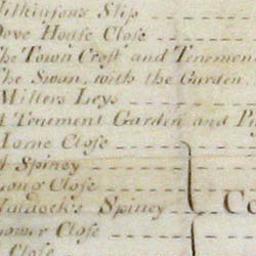 Wilkinson's Slip
Dove House Close
The Town Croft and Tenement
The Swan, with the Garden
Millers Leys
A Tenement Garden and
Horne Close
A Spiney
Long Close
Spiney
Lower Close
Close